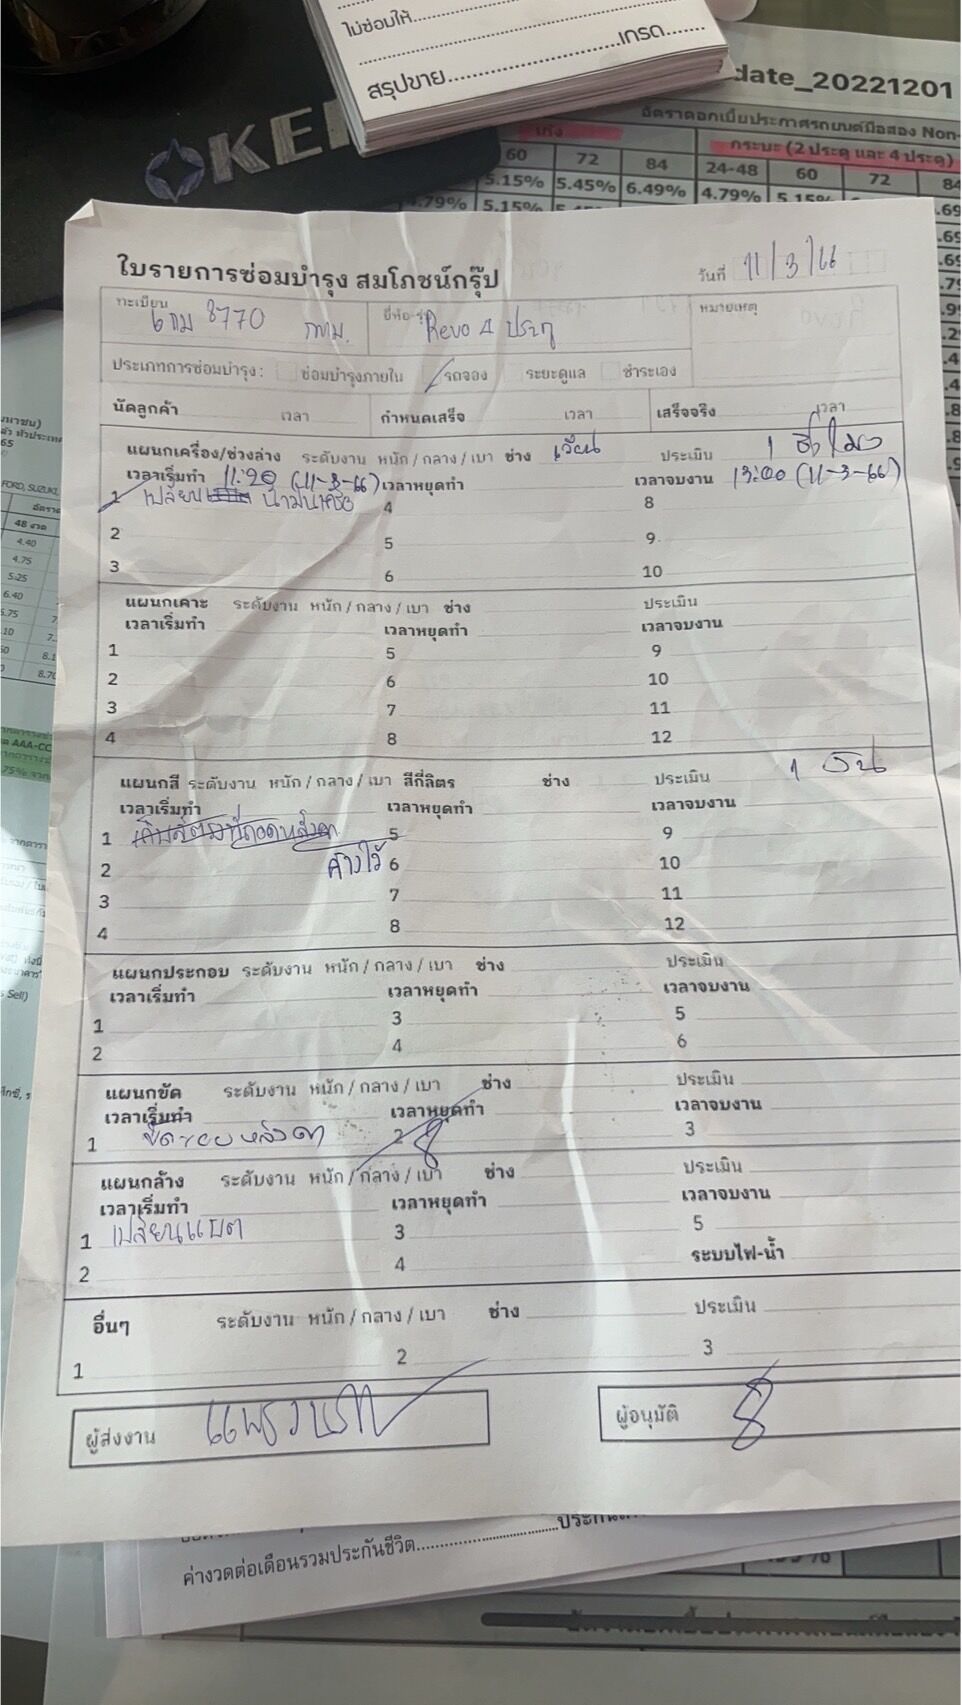 ไม่ซ่อมให้
สรุปขาย เกรด
date_20221201
อัตราดอกเบี้ยประกาศรถยนต์มือสอง Non-
เก๋ง กระบะ (2 ประตู และ 4 ประตู)
60 72 84 24-48 60 72 84
5.15% 5.45% 6.49% 4.79% 5.15%
4.79% 5.15%
ใบรายการซ่อมบำรุง สมโภชน์กรุ๊ป
วันที่ 11/3/66
ทะเบียน 6 กม 8770 กทม. ยี่ห้อ-รุ่น Revo 4 ประตู หมายเหตุ
ประเภทการซ่อมบำรุง : ซ่อมบำรุงภายใน รถจอง ระยะดูแล ชำระเอง
นัดลูกค้า เวลา กำหนดเสร็จ เวลา เสร็จจริง เวลา
แผนกเครื่อง/ช่วงล่าง ระดับงาน หนัก / กลาง / เบา ช่าง ประเมิน 1 ชั่วโมง
เวลาเริ่มทำ 11:20 (11-3-66) เวลาหยุดทำ เวลาจบงาน 13:00 (11-3-66)
1 เปลี่ยน น้ำมันเครื่อง 4 8
2 5 9
3 6 10
แผนกเคาะ ระดับงาน หนัก / กลาง / เบา ช่าง ประเมิน
เวลาเริ่มทำ เวลาหยุดทำ เวลาจบงาน
1 5 9
2 6 10
3 7 11
4 8 12
แผนกสี ระดับงาน หนัก / กลาง / เบา สีกี่ลิตร ช่าง ประเมิน 1 วัน
เวลาเริ่มทำ เวลาหยุดทำ เวลาจบงาน
1 5 9
2 ค้างไว้ 6 10
3 7 11
4 8 12
แผนกประกอบ ระดับงาน หนัก / กลาง / เบา ช่าง ประเมิน
เวลาเริ่มทำ เวลาหยุดทำ เวลาจบงาน
1 3 5
2 4 6
แผนกขัด ระดับงาน หนัก / กลาง / เบา ช่าง ประเมิน
เวลาเริ่มทำ เวลาหยุดทำ เวลาจบงาน
1 ขัดรอบหลังคา 2 3
แผนกล้าง ระดับงาน หนัก / กลาง / เบา ช่าง ประเมิน
เวลาเริ่มทำ เวลาหยุดทำ เวลาจบงาน
1 เปลี่ยนแบต 3 5
2 4 ระบบไฟ-น้ำ
อื่นๆ ระดับงาน หนัก / กลาง / เบา ช่าง ประเมิน
1 2 3
ผู้ส่งงาน ผู้อนุมัติ
ค่างวดต่อเดือนรวมประกันชีวิต